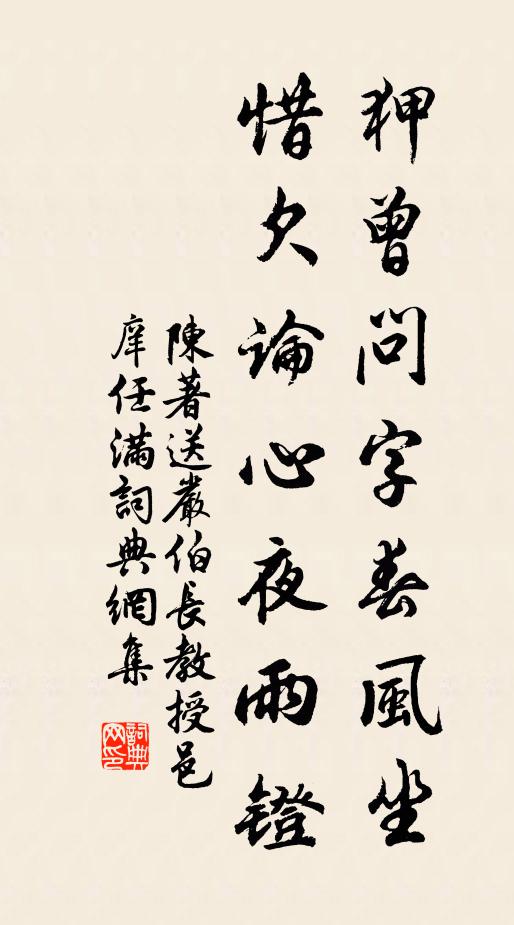 狎曾問字春風坐
惜欠論心夜雨鐙
陳著送嚴伯長教授邑
庠任滿詞典網集
詞典
网印